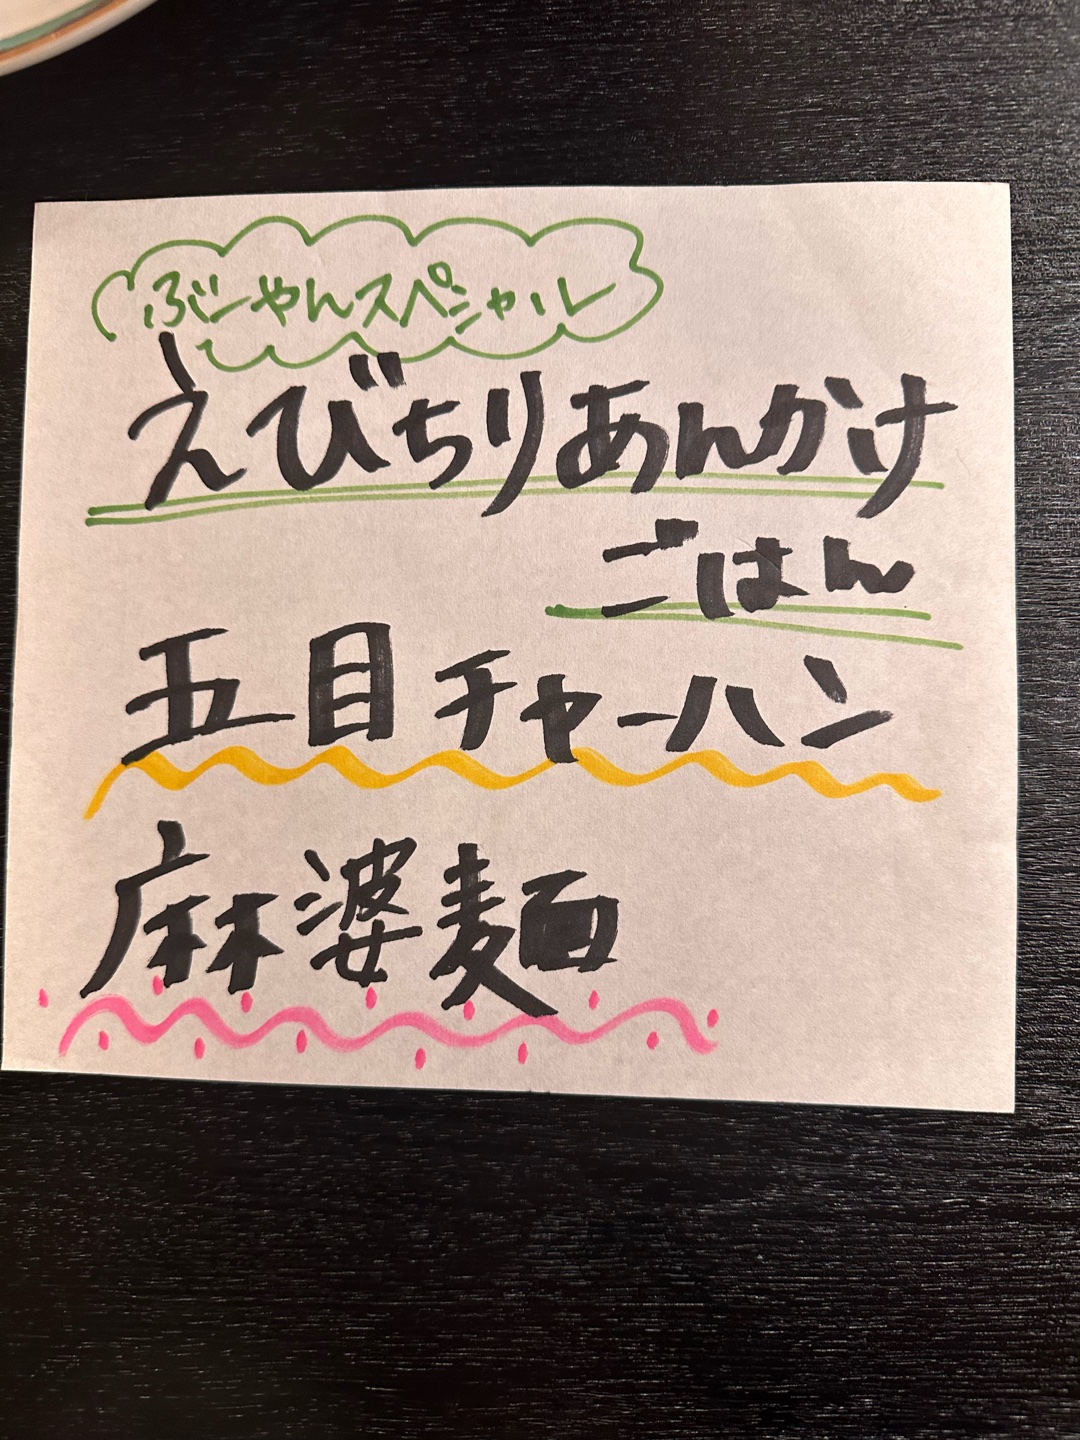 ぶーやんスペシャル
えびちりあんかけ
ごはん
五目チャーハン
麻婆麺